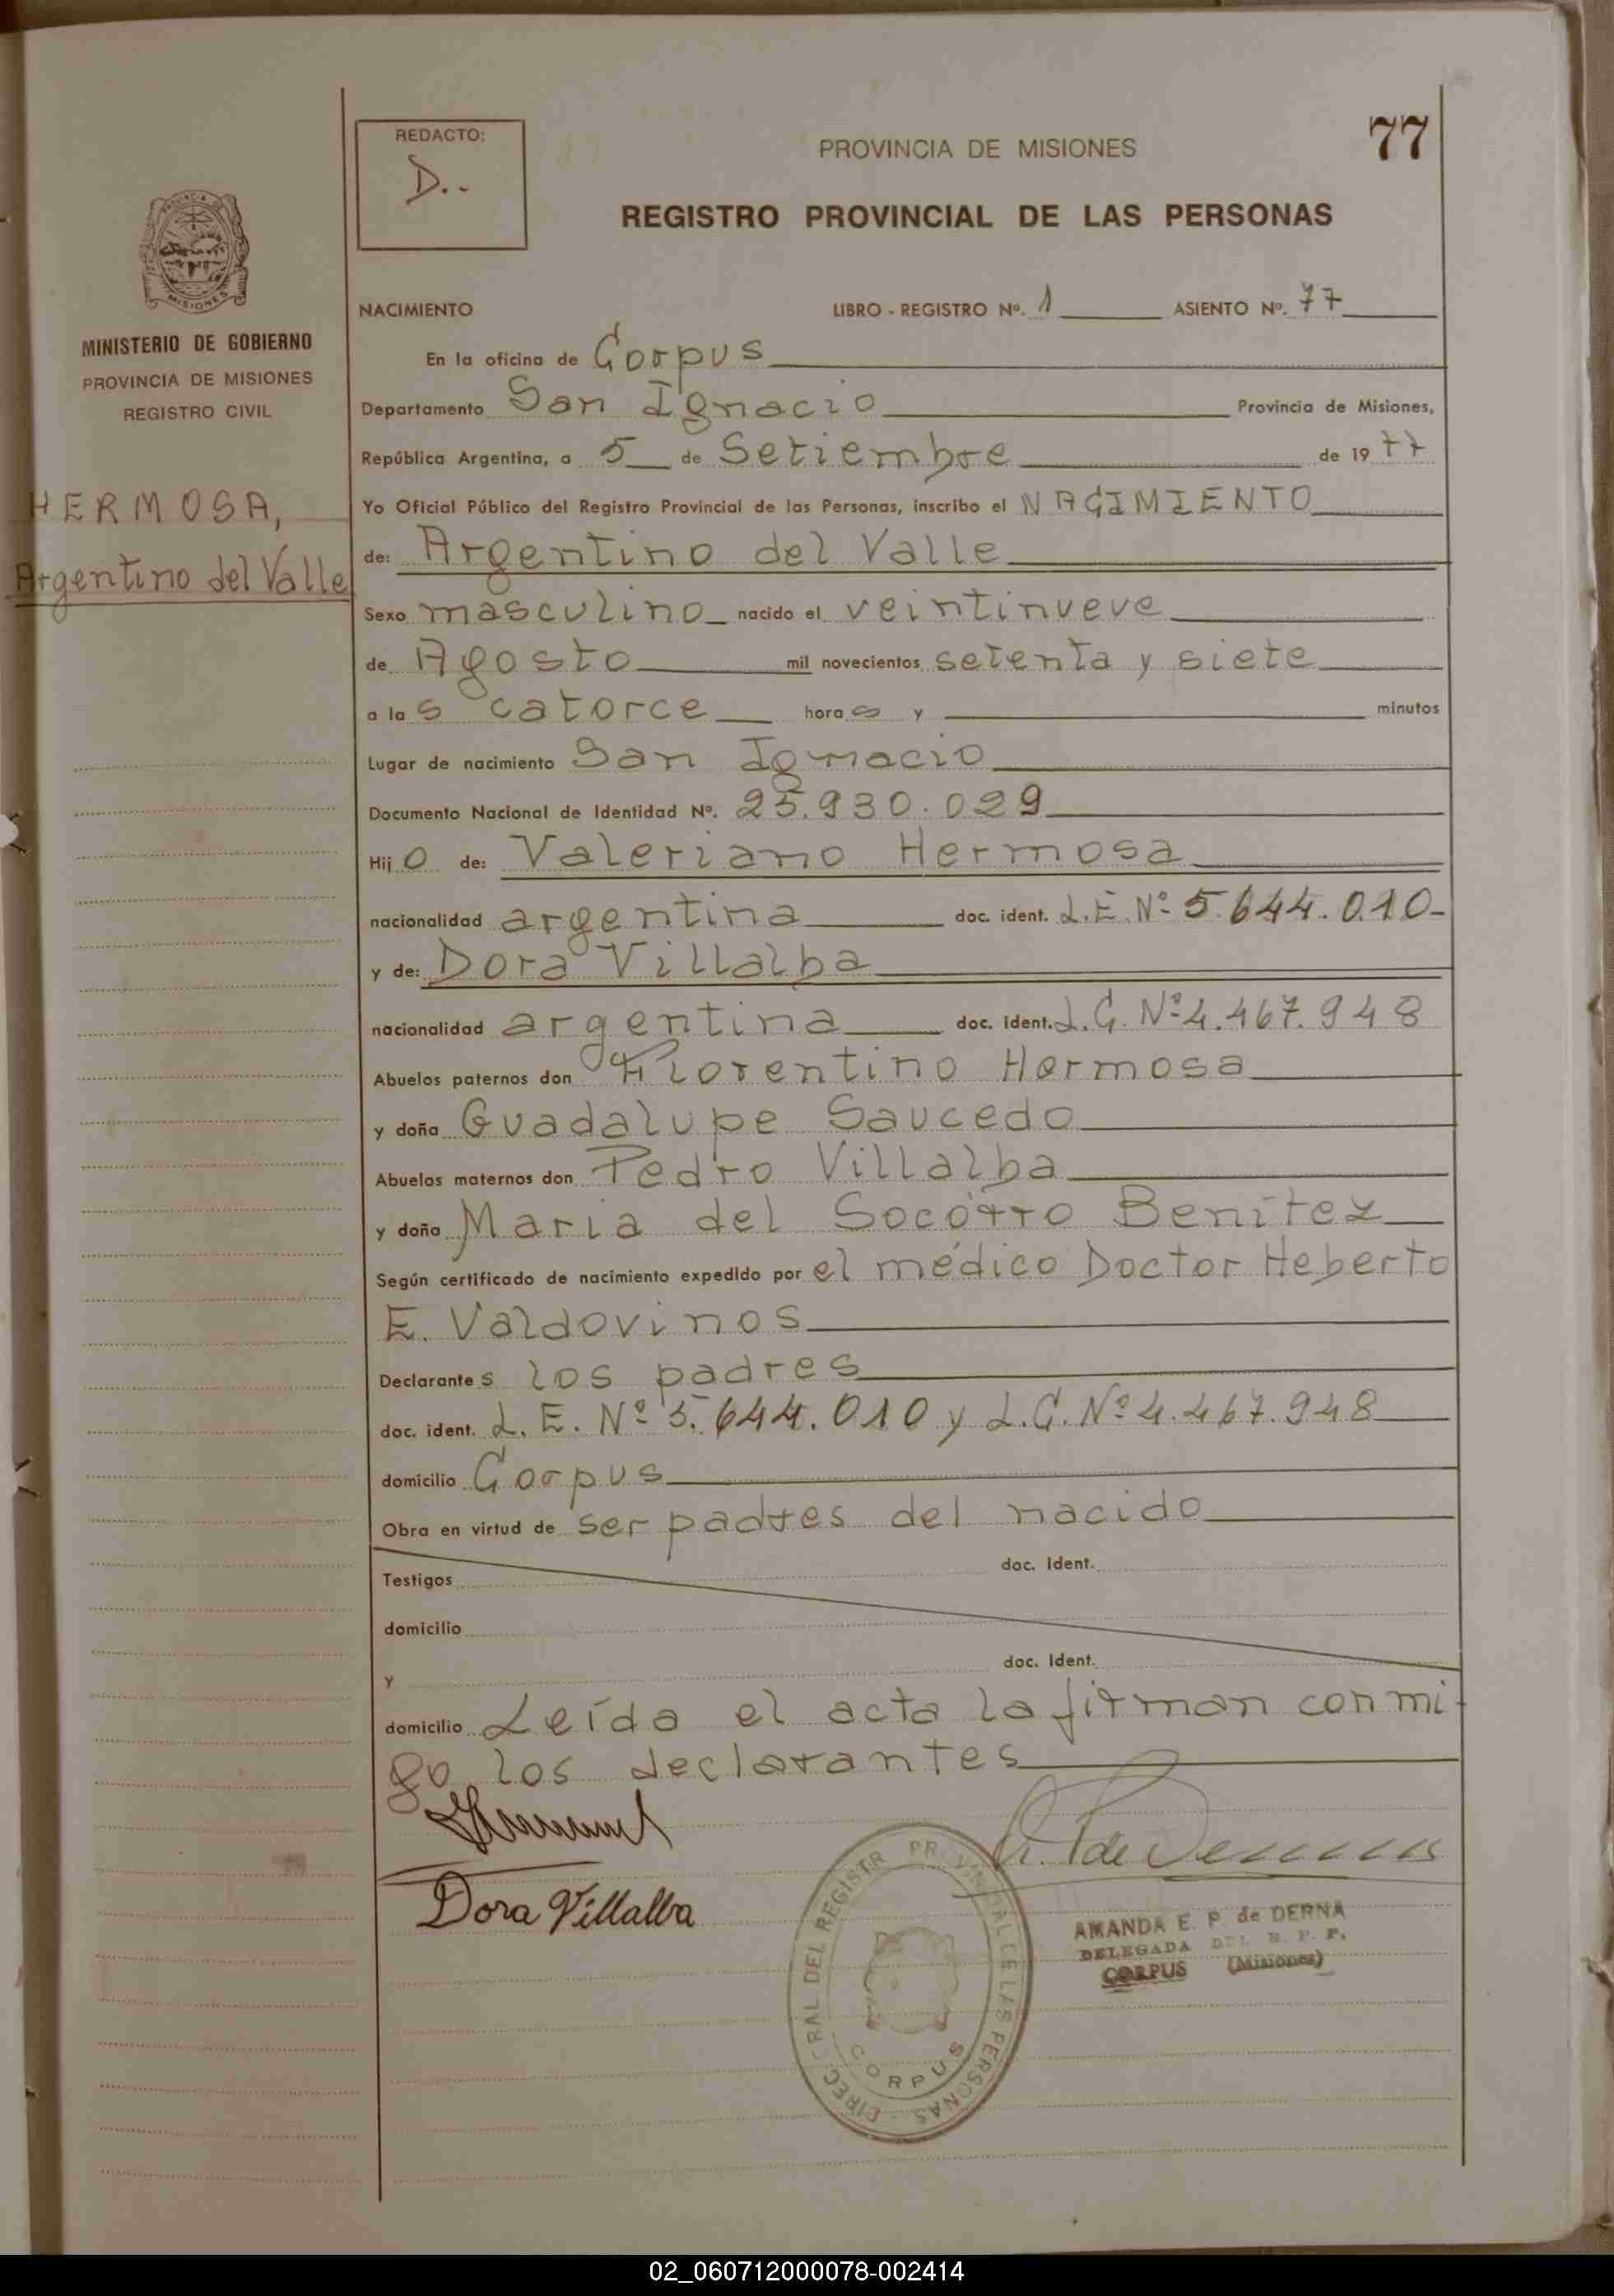 77
REDACTO:
D..
PROVINCIA DE MISIONES
REGISTRO PROVINCIAL DE LAS PERSONAS
MISIONES
MINISTERIO DE GOBIERNO
PROVINCIA DE MISIONES
REGISTRO CIVIL
HERMOSA,
Argentino del Valle
NACIMIENTO LIBRO - REGISTRO Nº. 1 ASIENTO Nº. 77
En la oficina de Corpus
Departamento San Ignacio Provincia de Misiones,
República Argentina, a 5 de Setiembre de 1977
Yo Oficial Público del Registro Provincial de las Personas, inscribo el NACIMIENTO
de: Argentino del Valle
Sexo masculino nacido el veintinueve
de Agosto mil novecientos setenta y siete
a las catorce horas y minutos
Lugar de nacimiento San Ignacio
Documento Nacional de Identidad Nº. 25.930.029
Hijo de: Valeriano Hermosa
nacionalidad argentina doc. ident. L.E. Nº 5.644.010-
y de: Dora Villalba
nacionalidad argentina doc. ident. L.C. Nº 4.467.948
Abuelos paternos don Florentino Hermosa
y doña Guadalupe Saucedo
Abuelos maternos don Pedro Villalba
y doña Maria del Socorro Benítez
Según certificado de nacimiento expedido por el médico Doctor Heberto
E. Valdovinos
Declarantes los padres
doc. ident. L.E. Nº 5.644.010 y L.C. Nº 4.467.948
domicilio Corpus
Obra en virtud de ser padres del nacido
doc. Ident.
Testigos
domicilio
y doc. Ident.
domicilio Leída el acta la firman conmi-
go los declarantes
Dora Villalba
CORPUS
AMANDA E. P. de DERNA
DELEGADA DEL R. P. P.
CORPUS (Misiones)
02_060712000078-002414